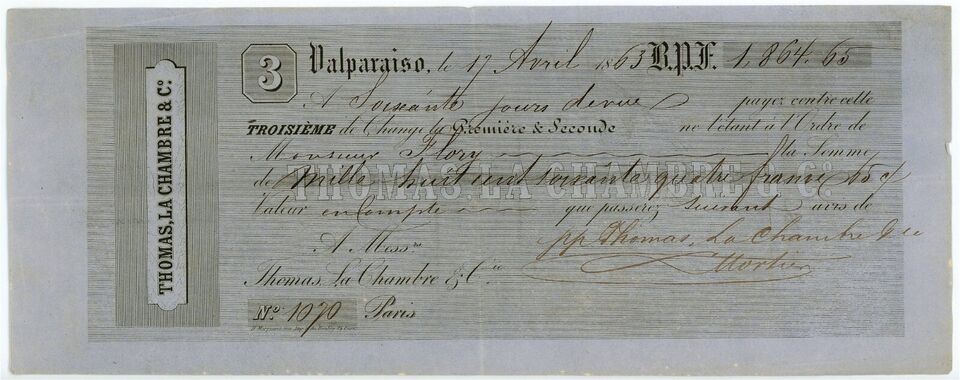 THOMAS, LA CHAMBRE & Co.
3 Valparaiso, le 17 Avril 1863 B.P.F. 1,864.65
A Soixante jours de vue payez contre cette
TROISIÈME de Change la Première & Seconde ne l'étant à l'Ordre de
Monsieur Flory la Somme
de Mille huit cent soixante quatre francs 65 c
THOMAS, LA CHAMBRE & Co.
Valeur en Compte que passerez suivant avis de
A Mess.rs pp Thomas, La Chambre & Cie
Thomas, La Chambre & Cie Mortier
No. 1070 Paris